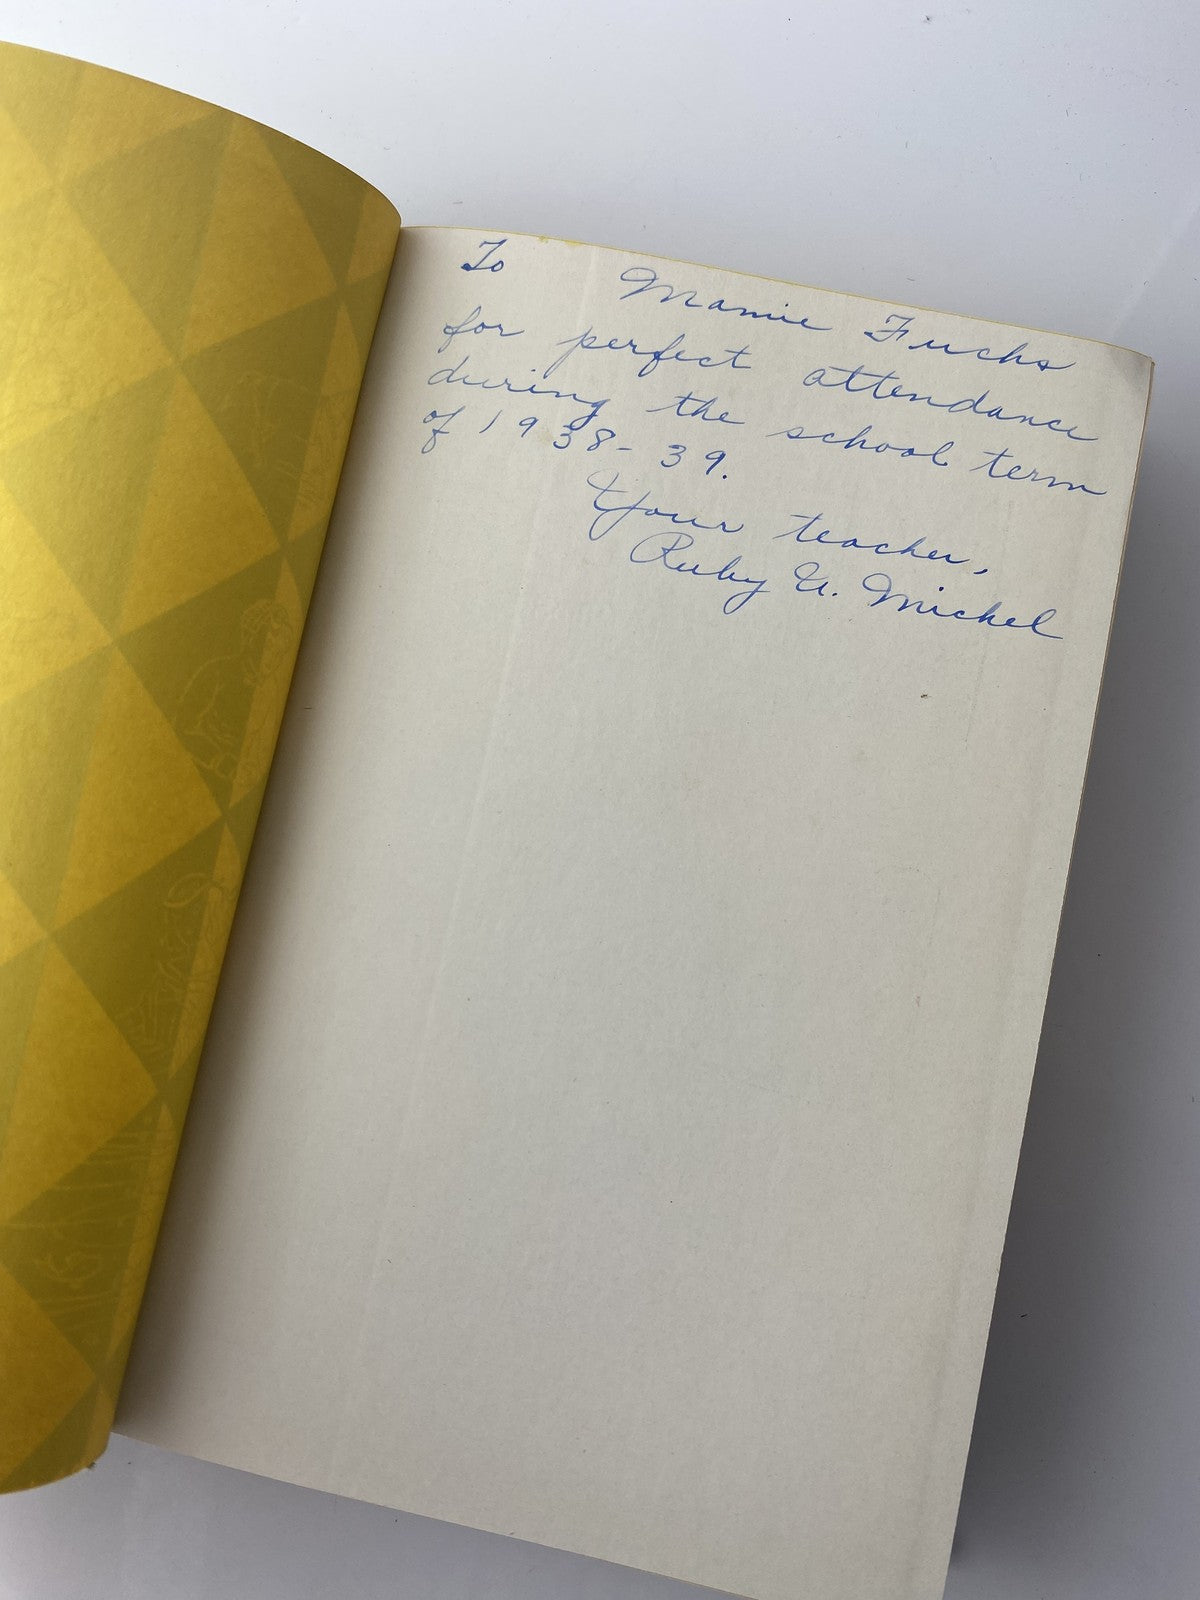 To Mamie Fuchs
for perfect attendance
during the school term
of 1938-39.
Your teacher,
Ruby U. Michel